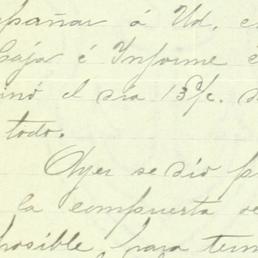 pañar á Ud. e
Caja é Informe é
inó el dia 15 p/c. d
todo.
Ayer se dió p
la compuerta de
posible, para term